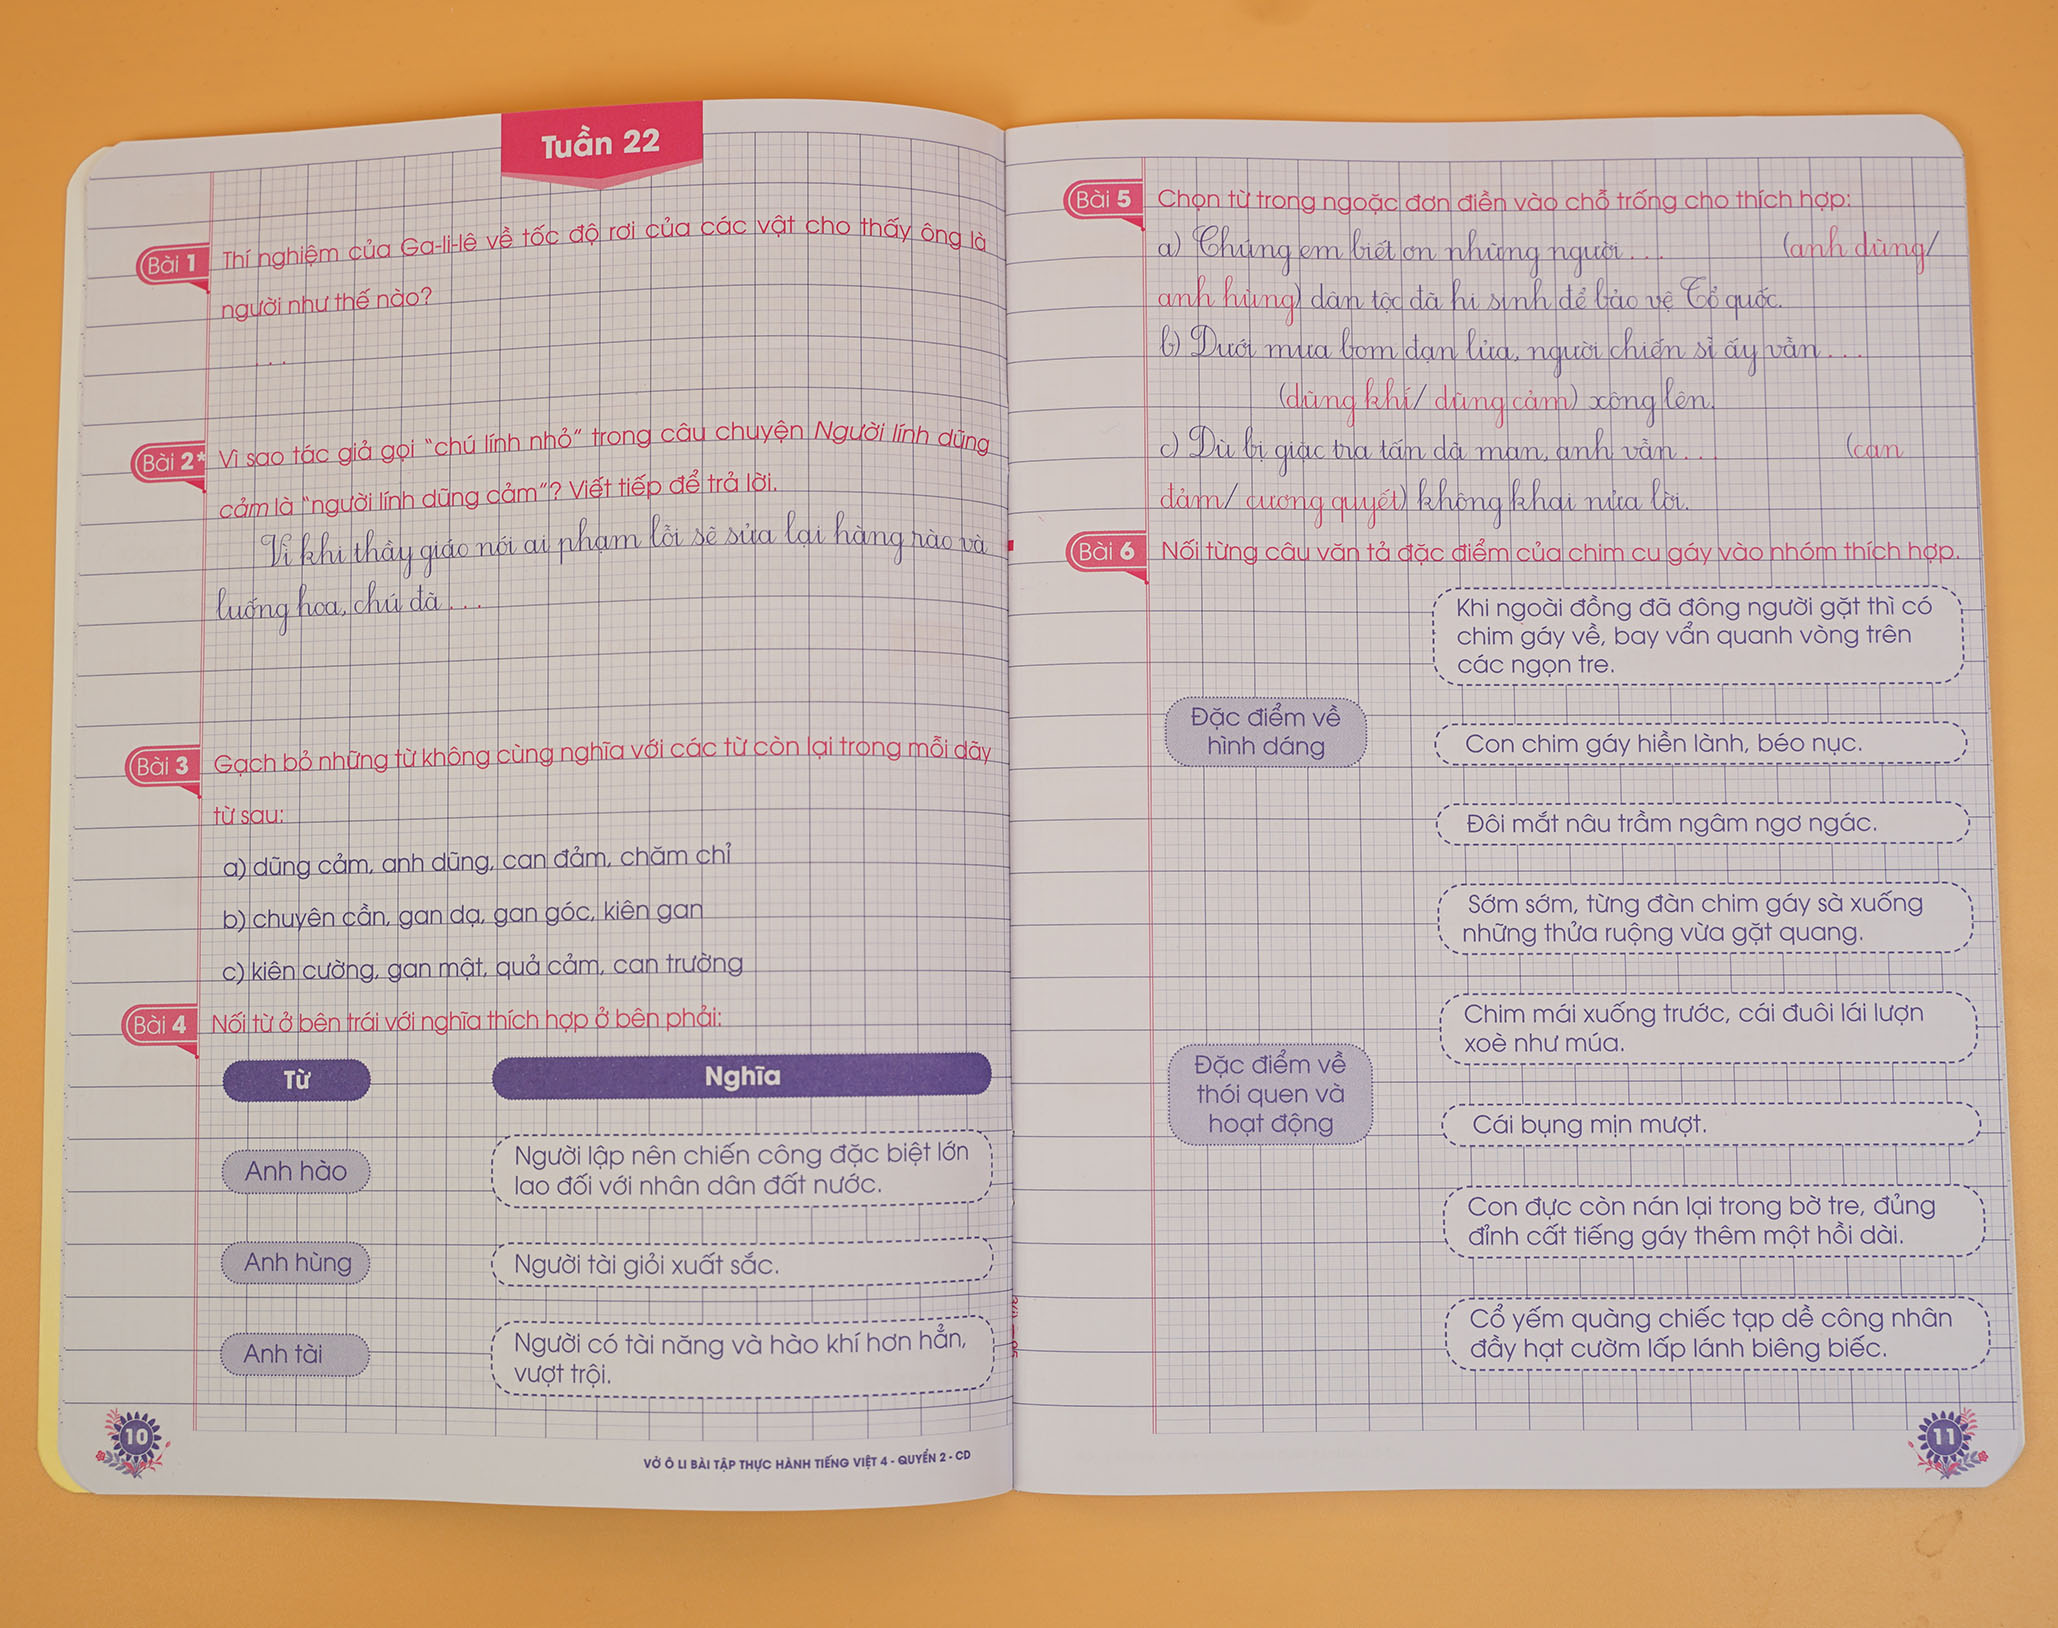 Tuần 22
Bài 1 Thí nghiệm của Ga-li-lê về tốc độ rơi của các vật cho thấy ông là
người như thế nào?
...
Bài 2* Vì sao tác giả gọi “chú lính nhỏ” trong câu chuyện Người lính dũng
cảm là “người lính dũng cảm”? Viết tiếp để trả lời.
Vì khi thầy giáo nói ai phạm lỗi sẽ sửa lại hàng rào và
luống hoa, chú đã ...
Bài 3 Gạch bỏ những từ không cùng nghĩa với các từ còn lại trong mỗi dãy
từ sau:
a) dũng cảm, anh dũng, can đảm, chăm chỉ
b) chuyên cần, gan dạ, gan góc, kiên gan
c) kiên cường, gan mật, quả cảm, can trường
Bài 4 Nối từ ở bên trái với nghĩa thích hợp ở bên phải:
Từ
Nghĩa
Anh hào
Người lập nên chiến công đặc biệt lớn
lao đối với nhân dân đất nước.
Anh hùng
Người tài giỏi xuất sắc.
Anh tài
Người có tài năng và hào khí hơn hẳn,
vượt trội.
10
VỞ Ô LI BÀI TẬP THỰC HÀNH TIẾNG VIỆT 4 - QUYỂN 2 - CD
Bài 5 Chọn từ trong ngoặc đơn điền vào chỗ trống cho thích hợp:
a) Chúng em biết ơn những người ... (anh dũng/
anh hùng) dân tộc đã hi sinh để bảo vệ Tổ quốc.
b) Dưới mưa bom đạn lửa, người chiến sĩ ấy vẫn ...
(dũng khí/ dũng cảm) xông lên.
c) Dù bị giặc tra tấn dã man, anh vẫn ... (can
đảm/ cương quyết) không khai nửa lời.
Bài 6 Nối từng câu văn tả đặc điểm của chim cu gáy vào nhóm thích hợp.
Khi ngoài đồng đã đông người gặt thì có
chim gáy về, bay vẩn quanh vòng trên
các ngọn tre.
Đặc điểm về
hình dáng
Con chim gáy hiền lành, béo nục.
Đôi mắt nâu trầm ngâm ngơ ngác.
Sớm sớm, từng đàn chim gáy sà xuống
những thửa ruộng vừa gặt quang.
Chim mái xuống trước, cái đuôi lái lượn
xoè như múa.
Đặc điểm về
thói quen và
hoạt động
Cái bụng mịn mượt.
Con đực còn nán lại trong bờ tre, đủng
đỉnh cất tiếng gáy thêm một hồi dài.
Cổ yếm quàng chiếc tạp dề công nhân
đầy hạt cườm lấp lánh biêng biếc.
11